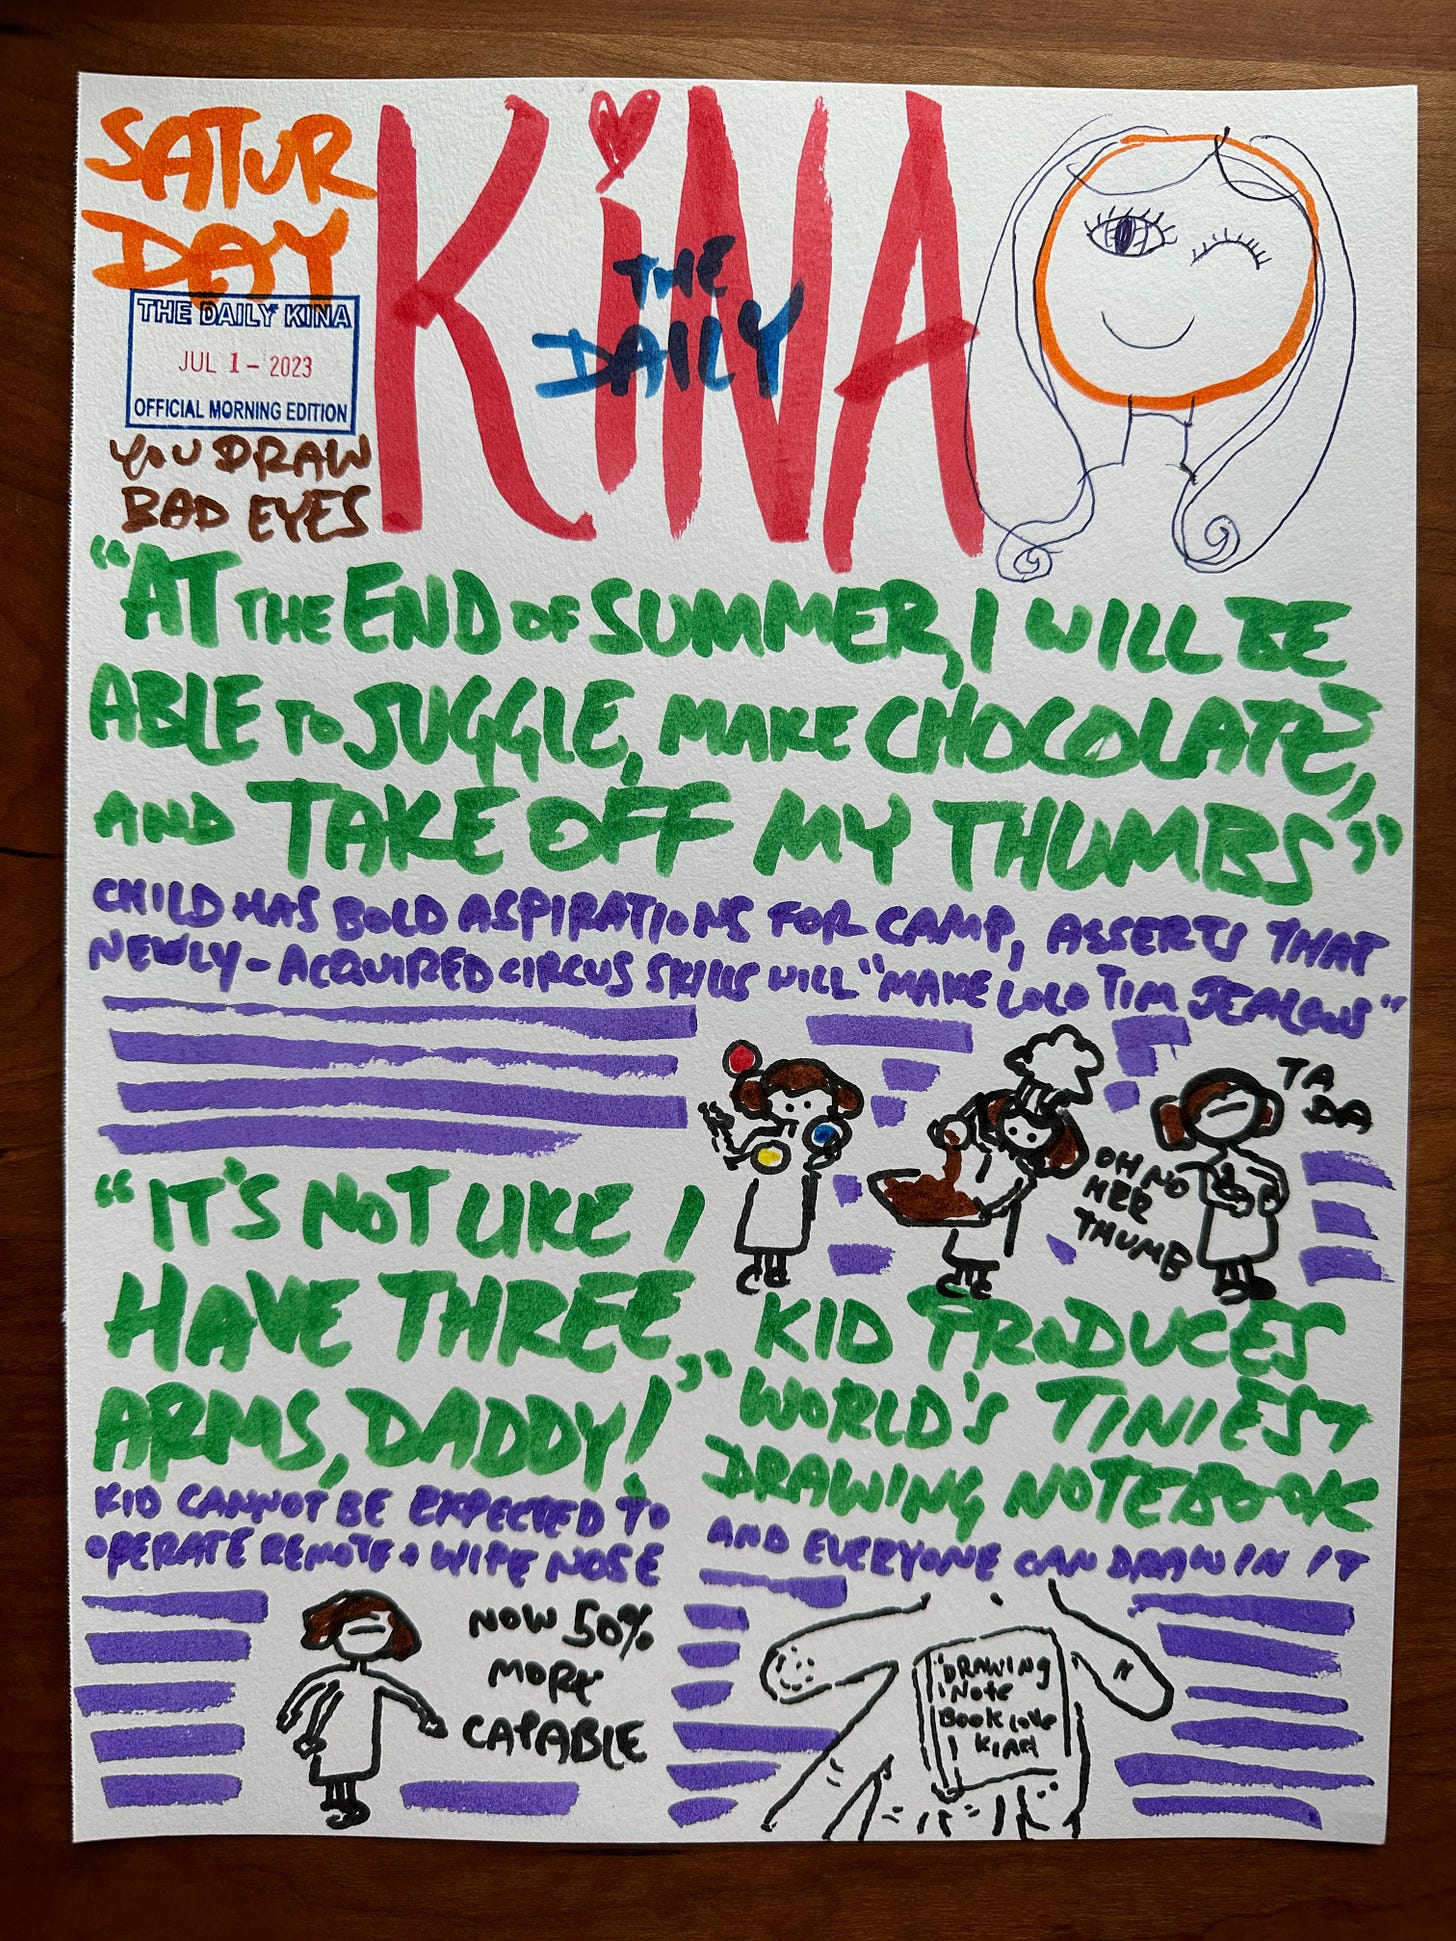 SATUR
DAY
THE DAILY KINA
JUL 1 - 2023
OFFICIAL MORNING EDITION
YOU DRAW
BAD EYES
KiNA
THE
DAILY
"AT THE END OF SUMMER, I WILL BE
ABLE TO JUGGLE, MAKE CHOCOLATE,
AND TAKE OFF MY THUMBS"
CHILD HAS BOLD ASPIRATIONS FOR CAMP, ASSERTS THAT
NEWLY-ACQUIRED CIRCUS SKILLS WILL "MAKE LOLO TIM JEALOUS"
TA
DA
OH NO
HER
THUMB
"IT'S NOT LIKE I
HAVE THREE
ARMS, DADDY!"
KID CANNOT BE EXPECTED TO
OPERATE REMOTE + WIPE NOSE
NOW 50%
MORE
CAPABLE
KID PRODUCES
WORLD'S TINIEST
DRAWING NOTEBOOK
AND EVERYONE CAN DRAW IN IT
DRAWING
Note
Book love